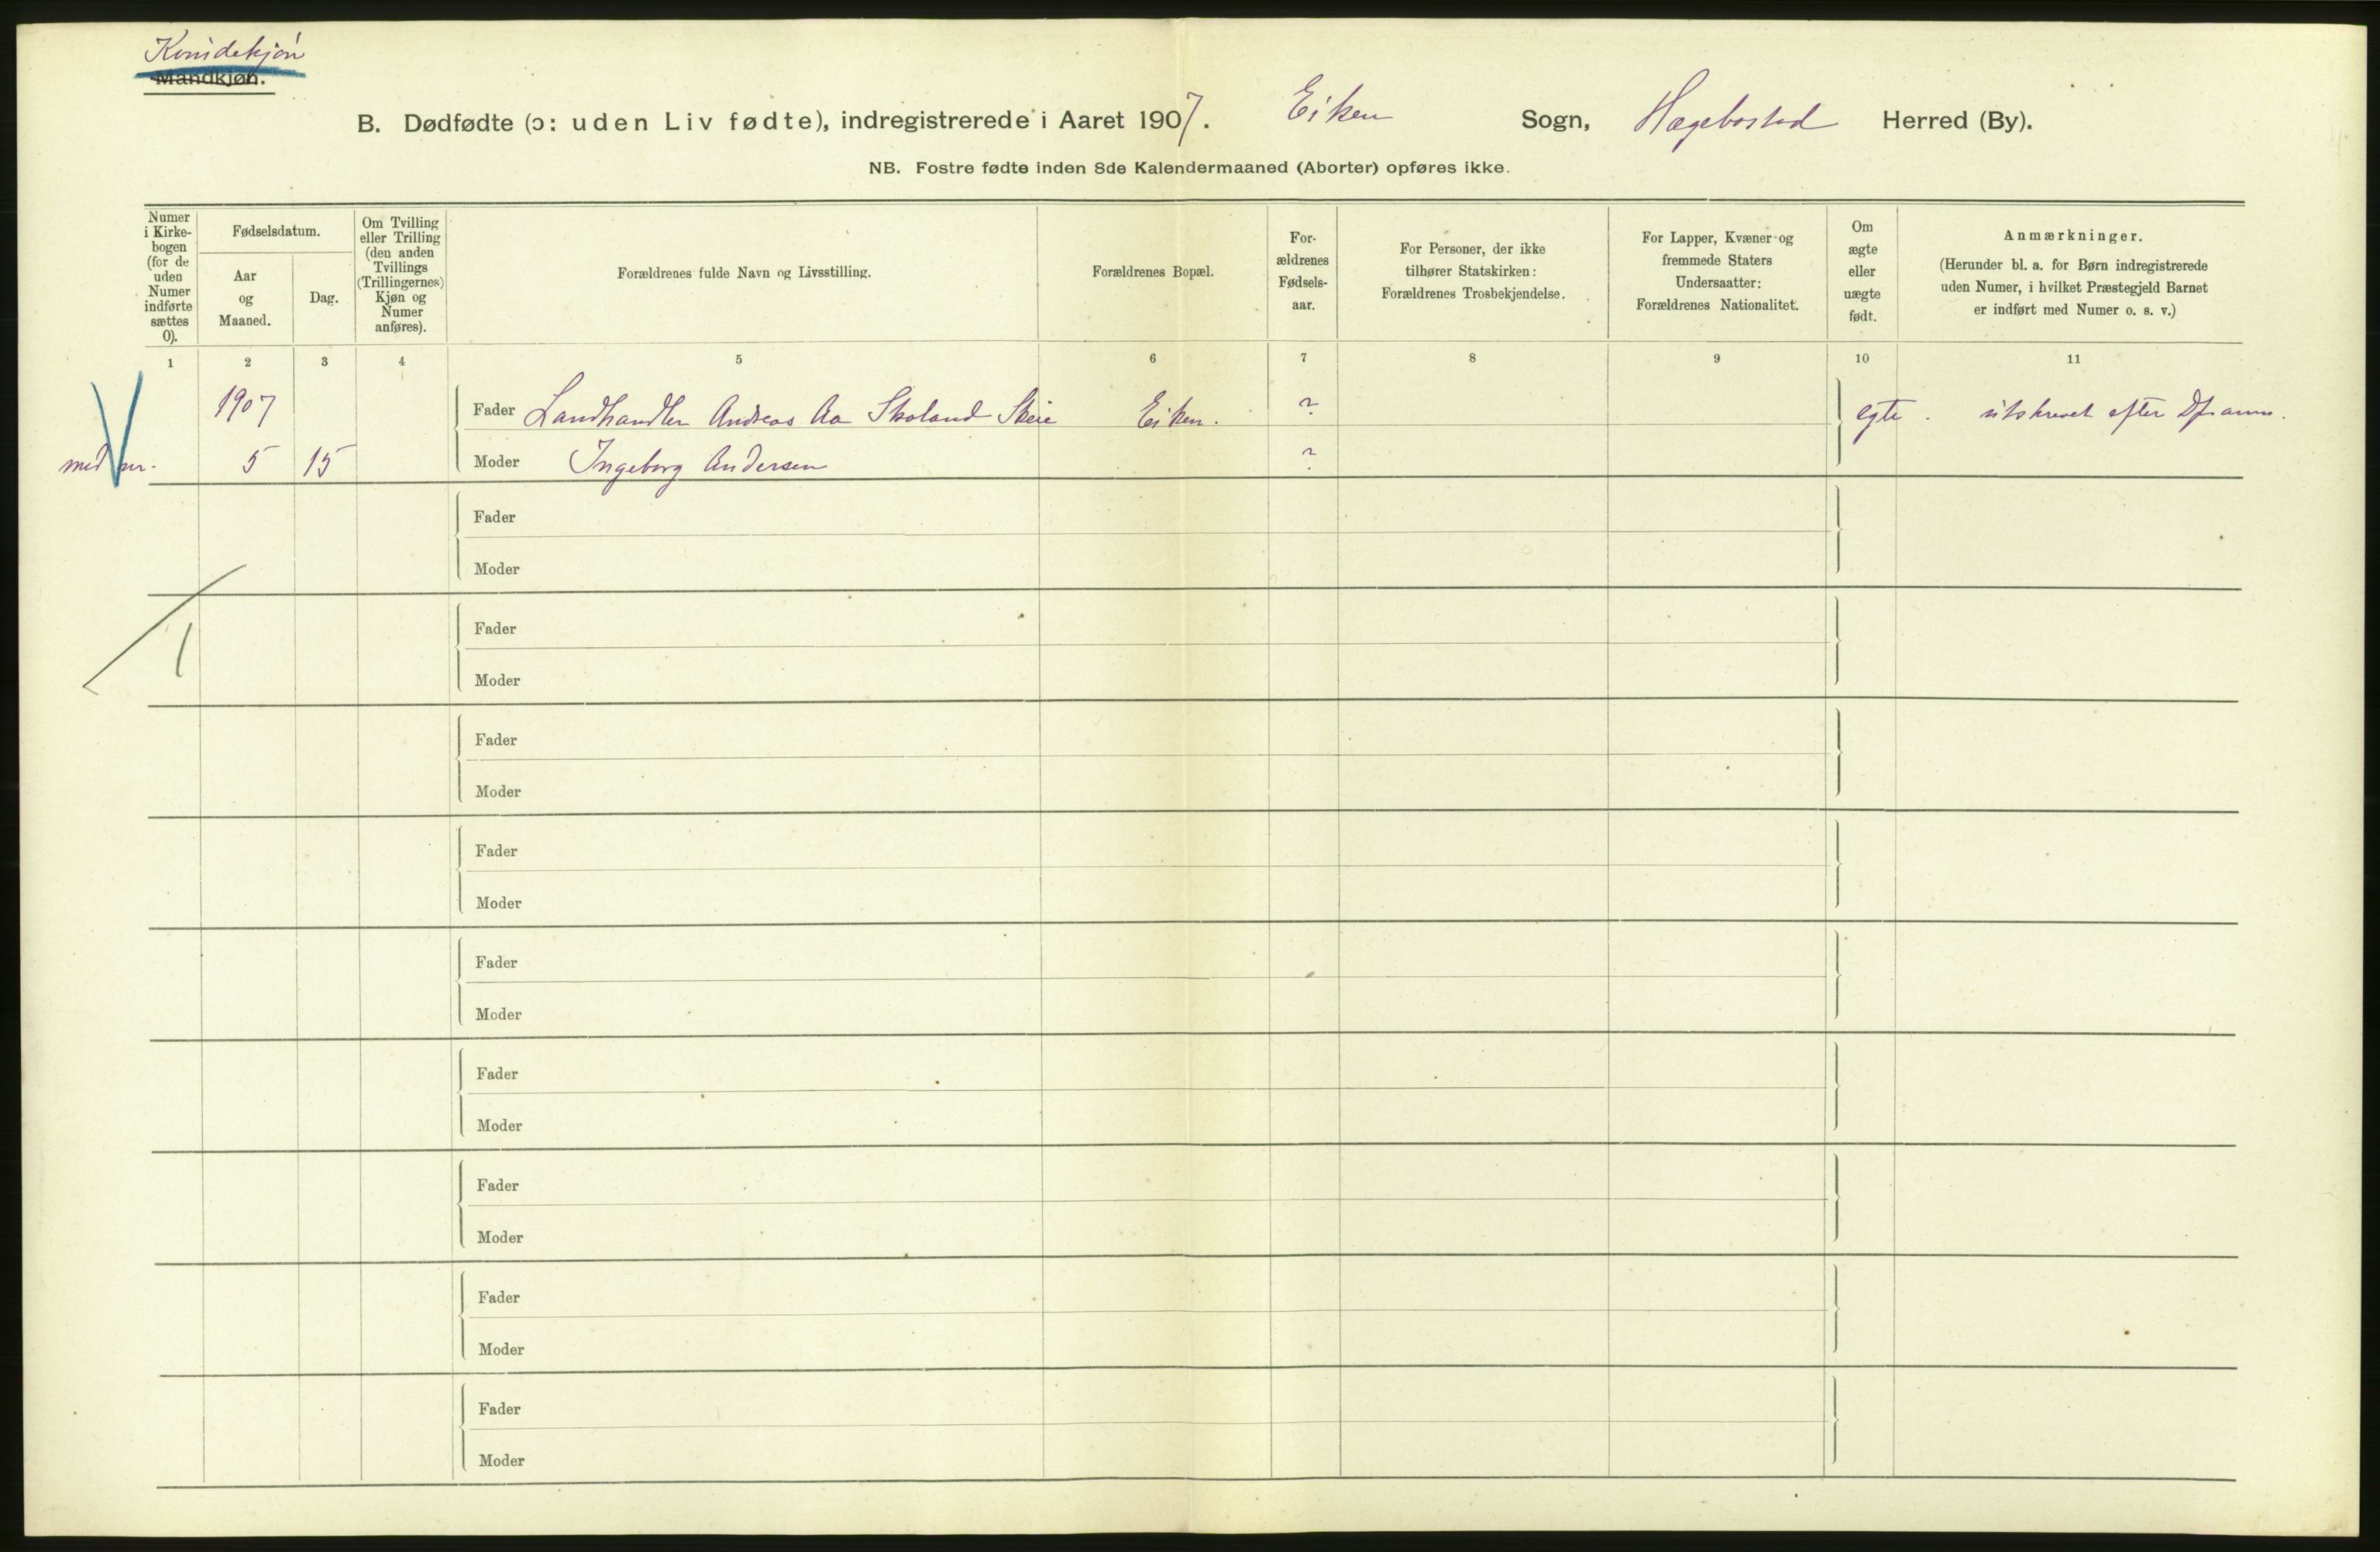 Kvindekjøn
Mandkjøn.
B. Dødfødte (ɔ: uden Liv fødte), indregistrerede i Aaret 1907. Eiken Sogn, Hægebostad Herred (By).
NB. Fostre fødte inden 8de Kalendermaaned (Aborter) opføres ikke.
Numer
i Kirke-
bogen
(for de
uden
Numer
indførte
sættes
0).
Fødselsdatum.
Aar
og
Maaned.
Dag.
Om Tvilling
eller Trilling
(den anden
Tvillings
(Trillingernes)
Kjøn og
Numer
anføres).
Forældrenes fulde Navn og Livsstilling.
Forældrenes Bopæl.
For-
ældrenes
Fødsels-
aar.
For Personer, der ikke
tilhører Statskirken:
Forældrenes Trosbekjendelse.
For Lapper, Kvæner og
fremmede Staters
Undersaatter:
Forældrenes Nationalitet.
Om
ægte
eller
uægte
født.
Anmærkninger.
(Herunder bl. a. for Børn indregistrerede
uden Numer, i hvilket Præstegjeld Barnet
er indført med Numer o. s. v.)
1 2 3 4 5 6 7 8 9 10 11
1907 Fader Landhandler Andreas Aa Skoland Skeie Eiken. ? egte. utskrevet efter
nr. 5 15 Moder Ingeborg Andersen ?
Fader
Moder
1
Fader
Moder
Fader
Moder
Fader
Moder
Fader
Moder
Fader
Moder
Fader
Moder
Fader
Moder
Fader
Moder